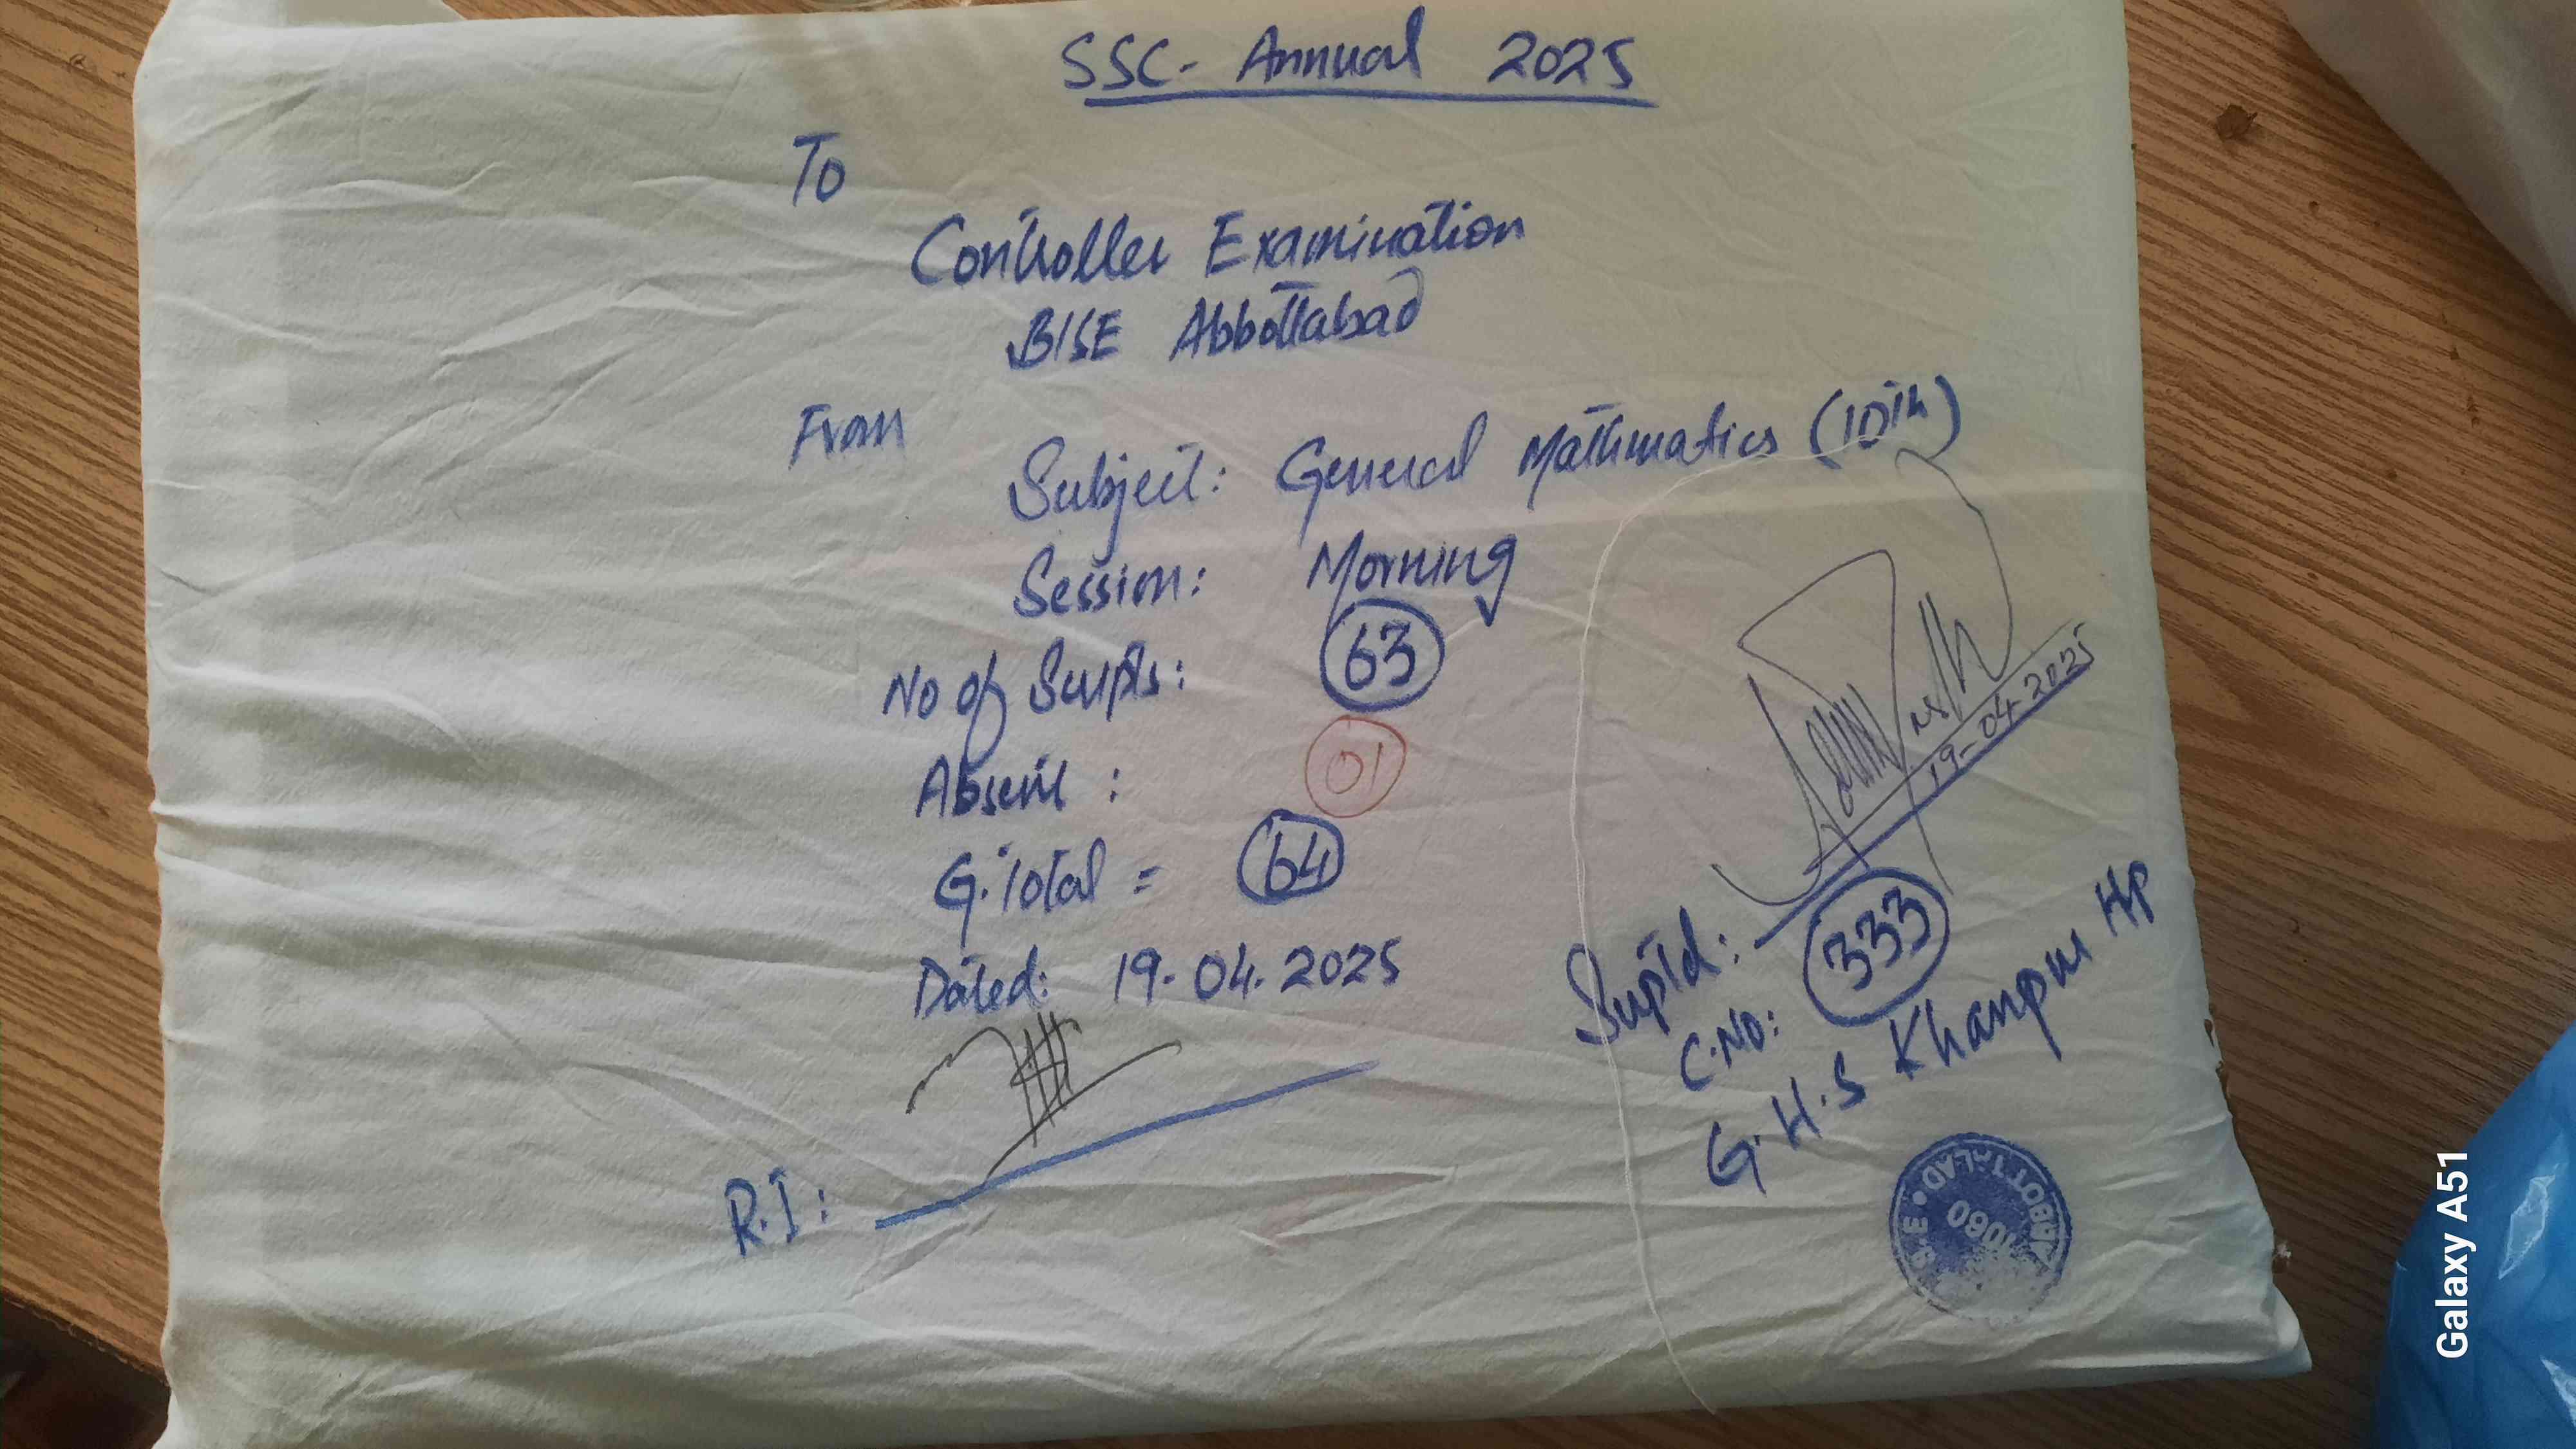 SSC- Annual 2025
To
Controller Examination
BISE Abbottabad
From
Subject: General Mathmatics (10th)
Session: Morning
No of Scripts: 63
Absent : 01
G.Total = 64
Dated: 19.04.2025
R.I:
19-04-2025
Suptd:
C.No: 333
G.H.S Khanpur HP
ABBOTTABAD
Galaxy A51